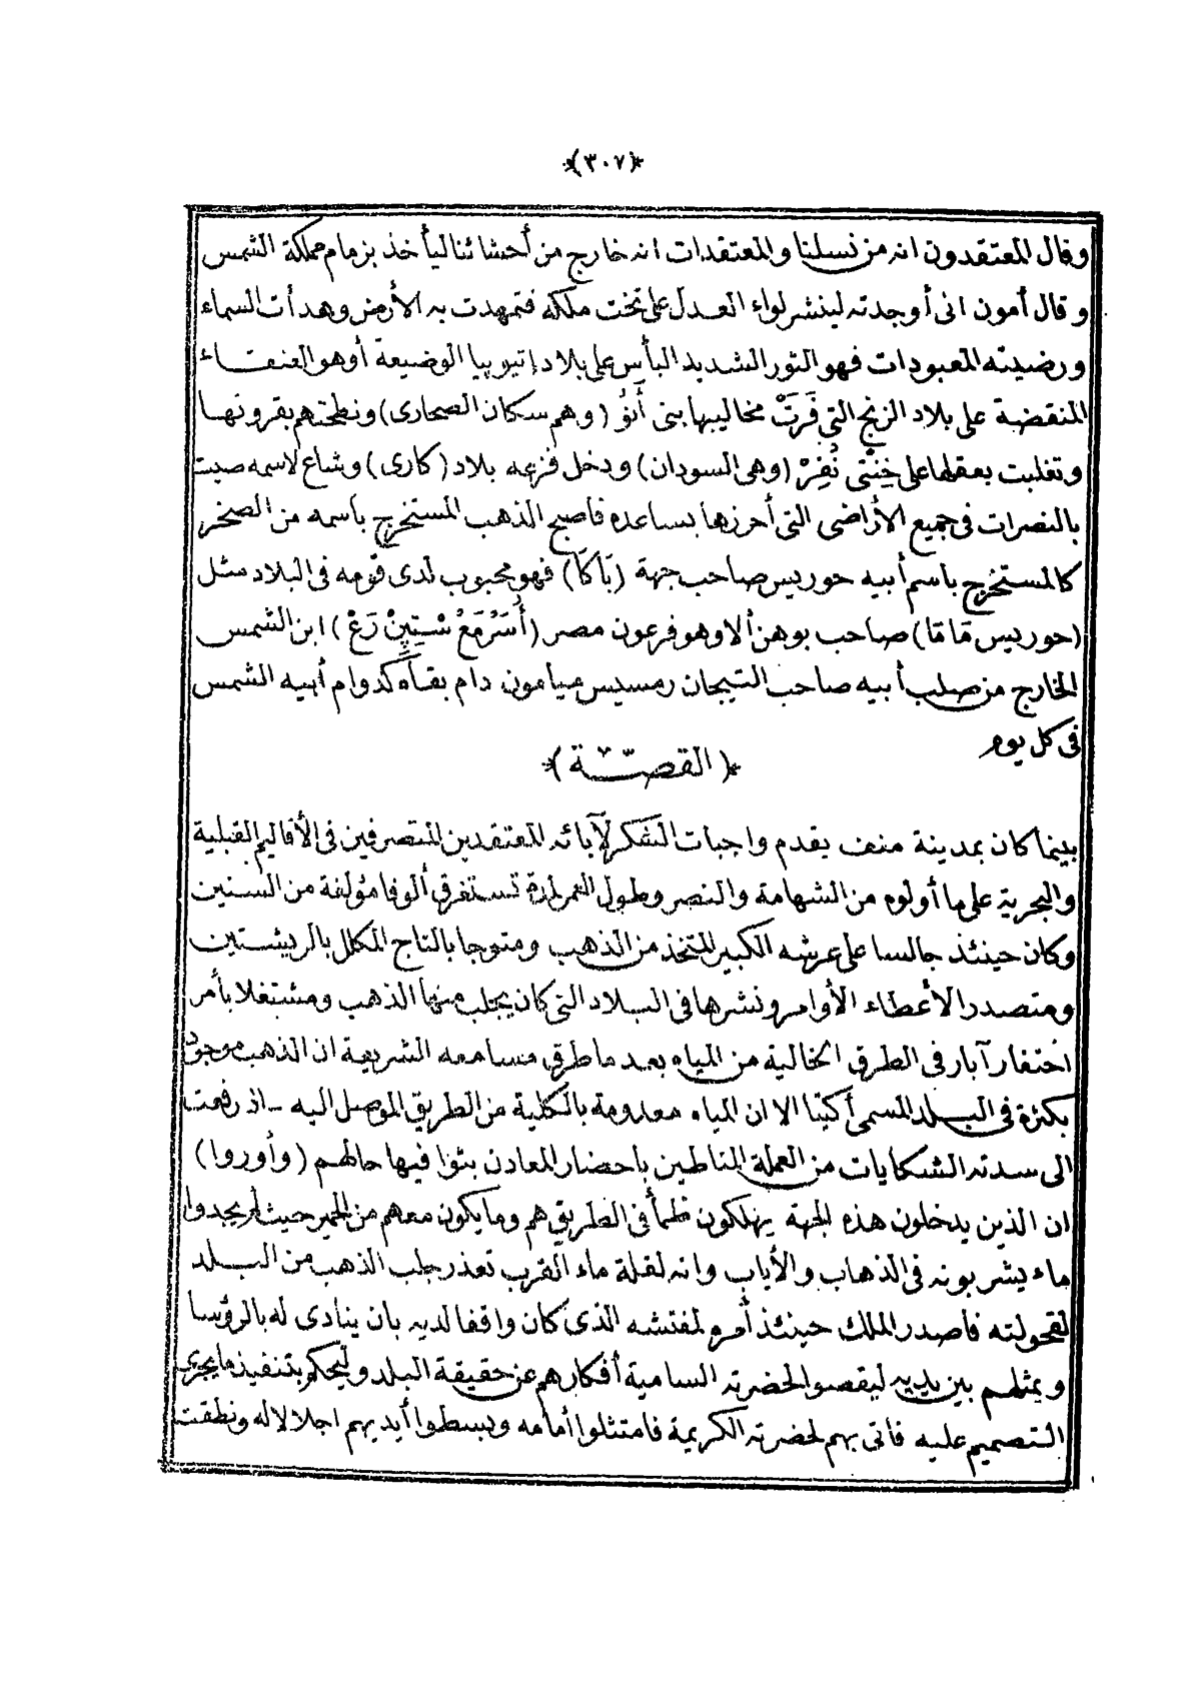 ﴿٣٠٧﴾
وقال المعتقدون انه من نسلنا والمعتقدات انه خارج من أحشائنا ليأخذ بزمام مملكة الشمس
وقال أمون انى أوجدته لينشر لواء العدل على تخت ملكه فتمهدت به الأرض وهدأت السماء
ورضيته المعبودات فهو الثور الشديد البأس على بلاد إتيوبيا الوضيعة أوهو العنقاء
المنقضة على بلاد الزنج التى فَرَتْ مخاليبها بنى أَنوُ (وهم سكان الصحارى) ونطحتهم بقرونها
وتغلبت بعقلها على خِنْتى نُفِرْ (وهى السودان) ودخل فزعه بلاد (كارى) وشاع لاسمه صيت
بالنصرات فى جميع الأراضى التى أحرزها بساعده فاصبح الذهب المستخرج باسمه من الصخر
كالمستخرج باسم أبيه حوريس صاحب جهة (بَاكَا) فهو محبوب لدى قومه فى البلاد مثل
(حوريس مَامَا) صاحب بوهن ألا وهو فرعون مصر (أُسَرْمَعْ سْتِپِنْ رَعْ) ابن الشمس
الخارج من صلب أبيه صاحب التيجان رمسيس ميامون دام بقاه كدوام أبيه الشمس
فى كل يوم
﴿القصة﴾
بينما كان بمدينة منف يقدم واجبات الشكر لآبائه المعتقدين المتصرفين فى الأقاليم القبلية
والبحرية على ما أولوه من الشهامة والنصر وطول العمر لمدة تستغرق ألوفا مؤلفة من السنين
وكان حينئذ جالسا على عرشه الكبير المتخذ من الذهب ومتوجا بالتاج المكلل بالريشتين
ومتصدرا لأعطاء الأوامر ونشرها فى البلاد التى كان يجلب منها الذهب ومشتغلا بأمر
احتفار آبار فى الطرق الخالية من المياه بعد ما طرق مسامعه الشريفة ان الذهب موجود
بكثرة فى البلد المسمى أكيتا الا ان المياه معدومة بالكلية من الطريق الموصل اليه - اذ رفعت
الى سدته الشكايات من العملة المناطين باحضار المعادن بثوا فيها حالهم (وأوروا)
ان الذين يدخلون هذه الجهة يهلكون ظمأ فى الطريق هم وما يكون معهم من الحمير حيث لم يجدوا
ماء يشربونه فى الذهاب والأياب وانه لقلة ماء القرب تعذر جلب الذهب من البلد
لقحولته فاصدر الملك حينئذ أمره لمفتشه الذى كان واقفا لديه بان ينادى له بالرؤسا
ويمثلهم بين يديه ليقصوا لحضرته السامية أفكارهم عن حقيقة البلد وليحكم بتنفيذ ما يجرى
التصميم عليه فاتى بهم لحضرته الكريمة فامتثلوا أمامه وبسطوا أيديهم اجلالا له ونطقت